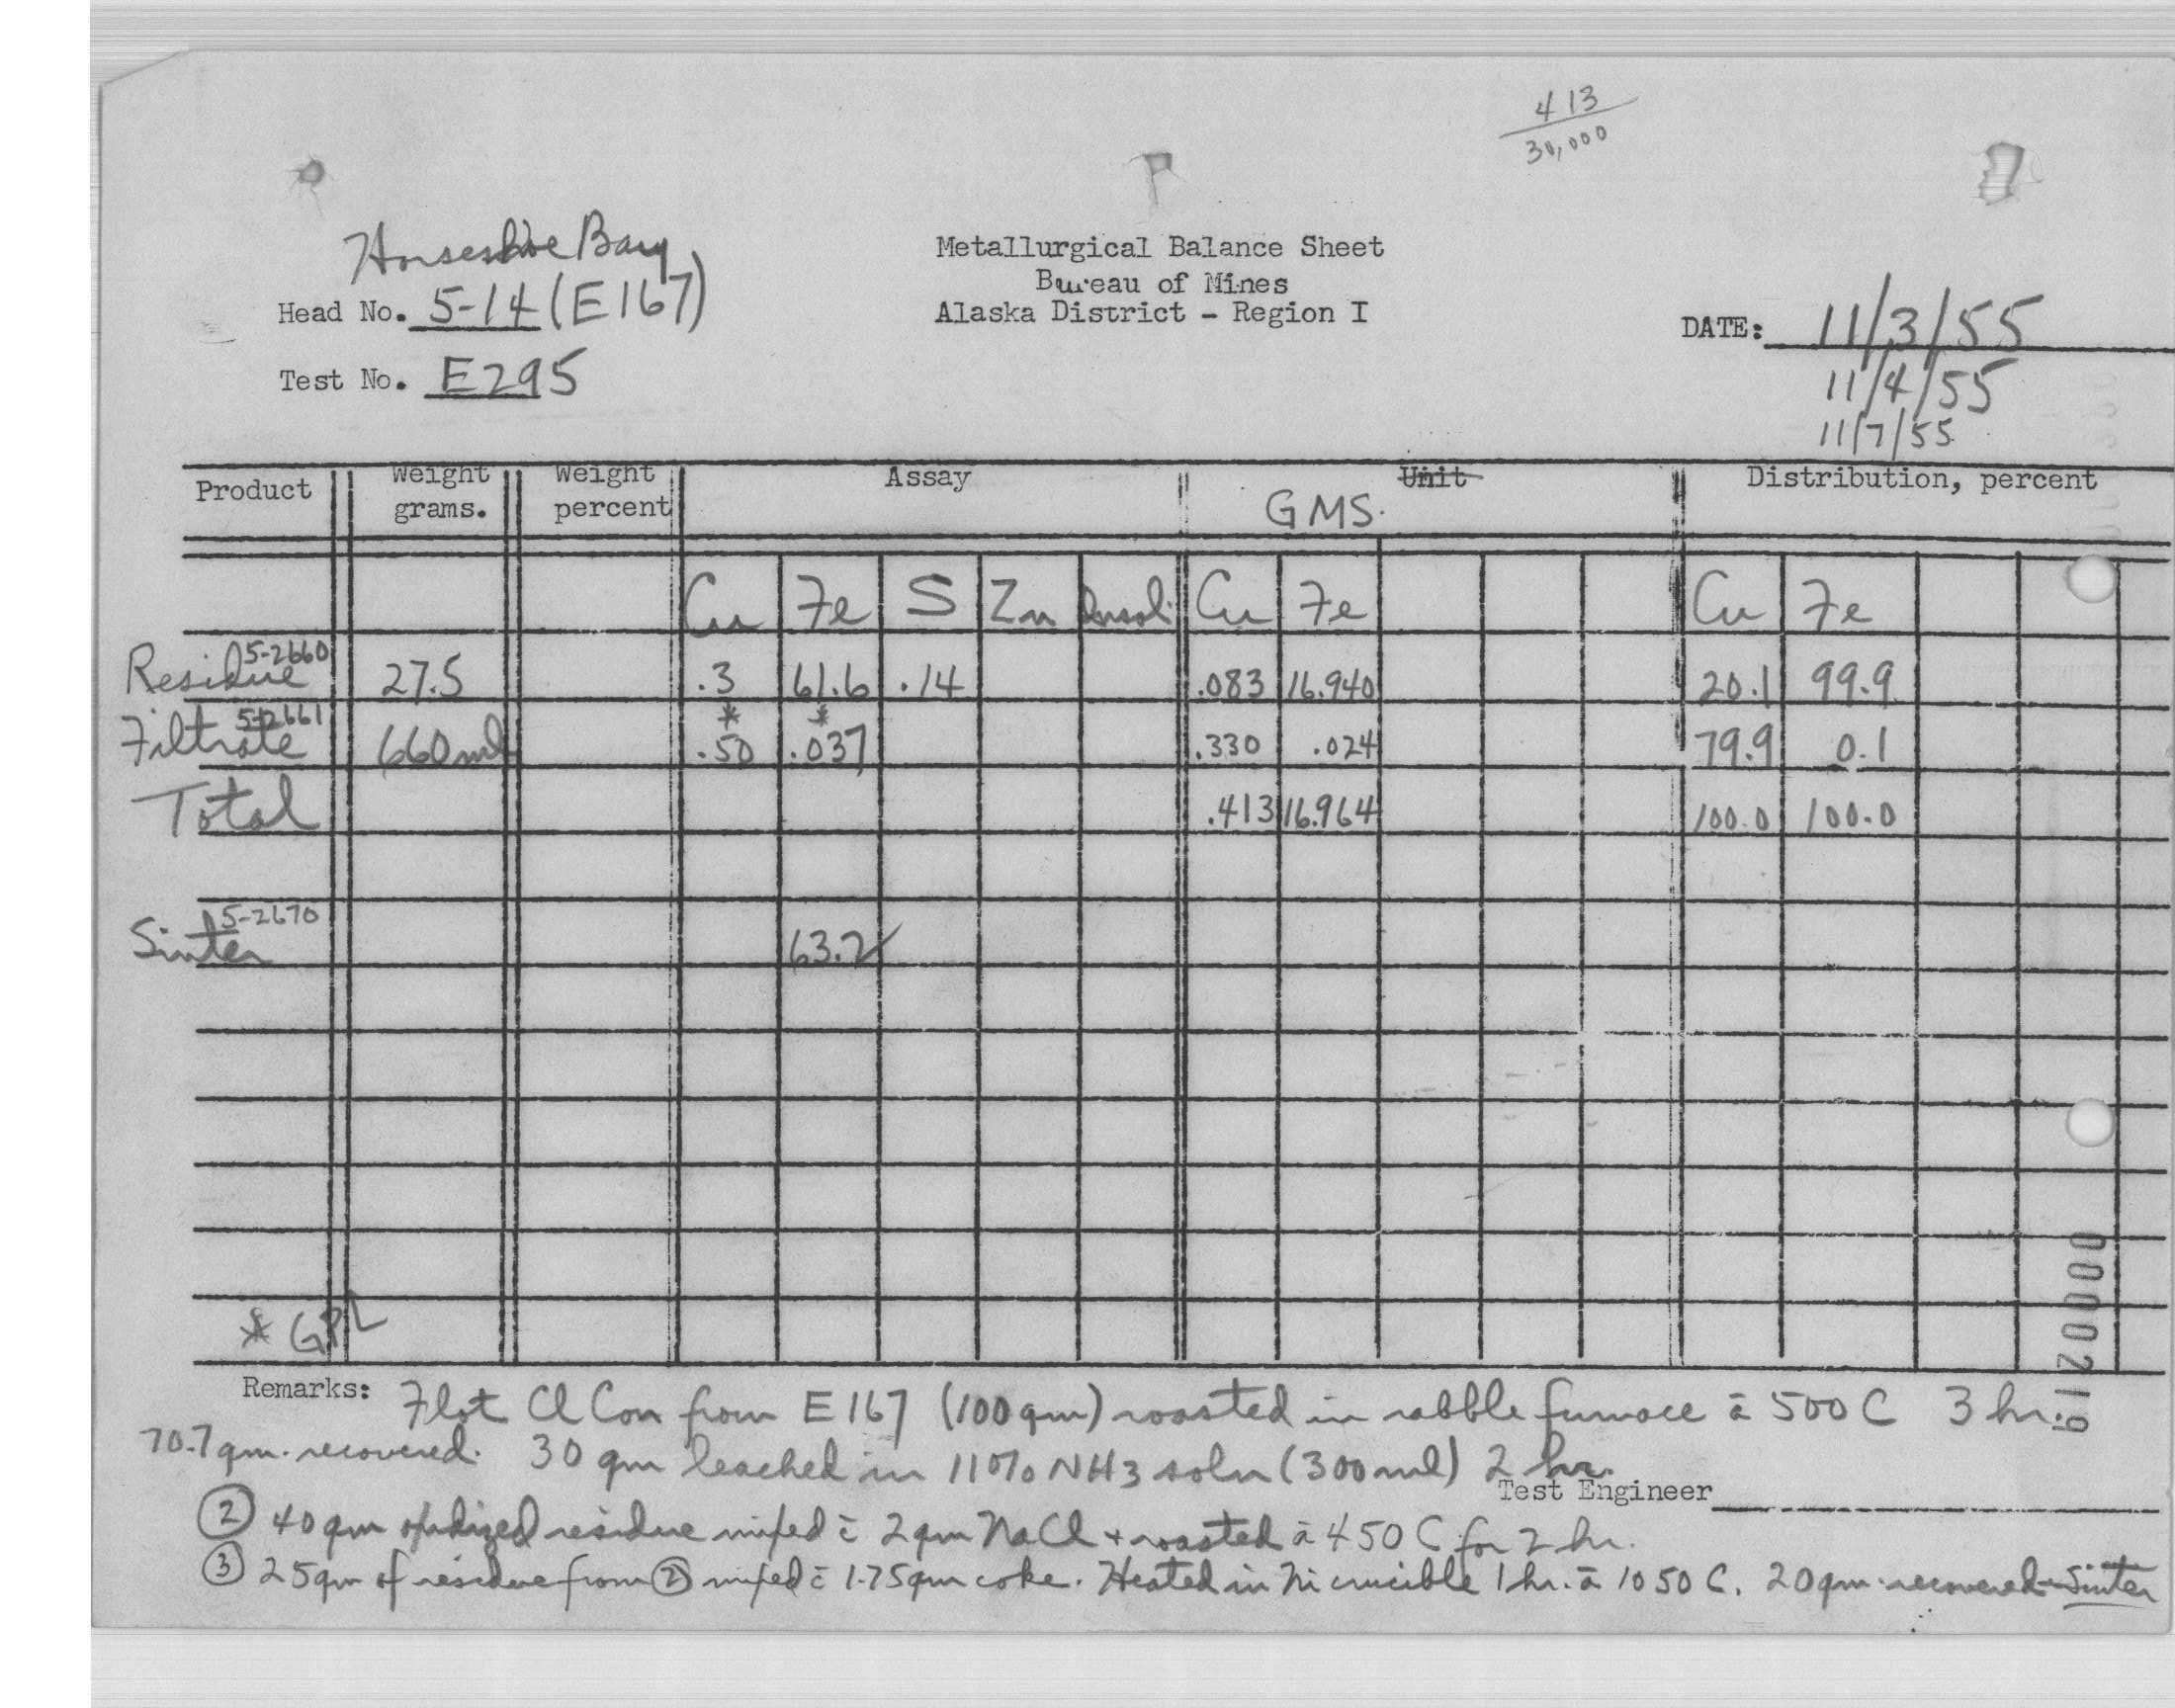 413
30,000
Horseshoe Bay
Metallurgical Balance Sheet
Bureau of Mines
Alaska District - Region I
Head No. 5-14 (E167)
Test No. E295
DATE: 11/3/55
11/4/55
11/7/55
Product Weight grams. Weight percent Assay Unit GMS. Distribution, percent
Cu Fe S Zn Insol. Cu Fe Cu Fe
Residue 5-2660 27.5 .3 61.6 .14 .083 16.940 20.1 99.9
Filtrate 5-2661 660ml .50* .037* .330 .024 79.9 0.1
Total .413 16.964 100.0 100.0
Sinter 5-2670 63.2
* GPL
0000219
Remarks: Flot Cl Con from E167 (100 gm) roasted in rabble furnace ā 500 C 3 hr.
70.7 gm. recovered. 30 gm leached in 11% NH3 soln (300 ml) 2 hr.
Test Engineer
② 40 gm oxidized residue mixed c̄ 2 gm NaCl + roasted ā 450 C for 2 hr.
③ 25 gm of residue from ② mixed c̄ 1.75 gm coke. Heated in Ni crucible 1 hr. ā 1050 C. 20 gm. recovered - Sinter